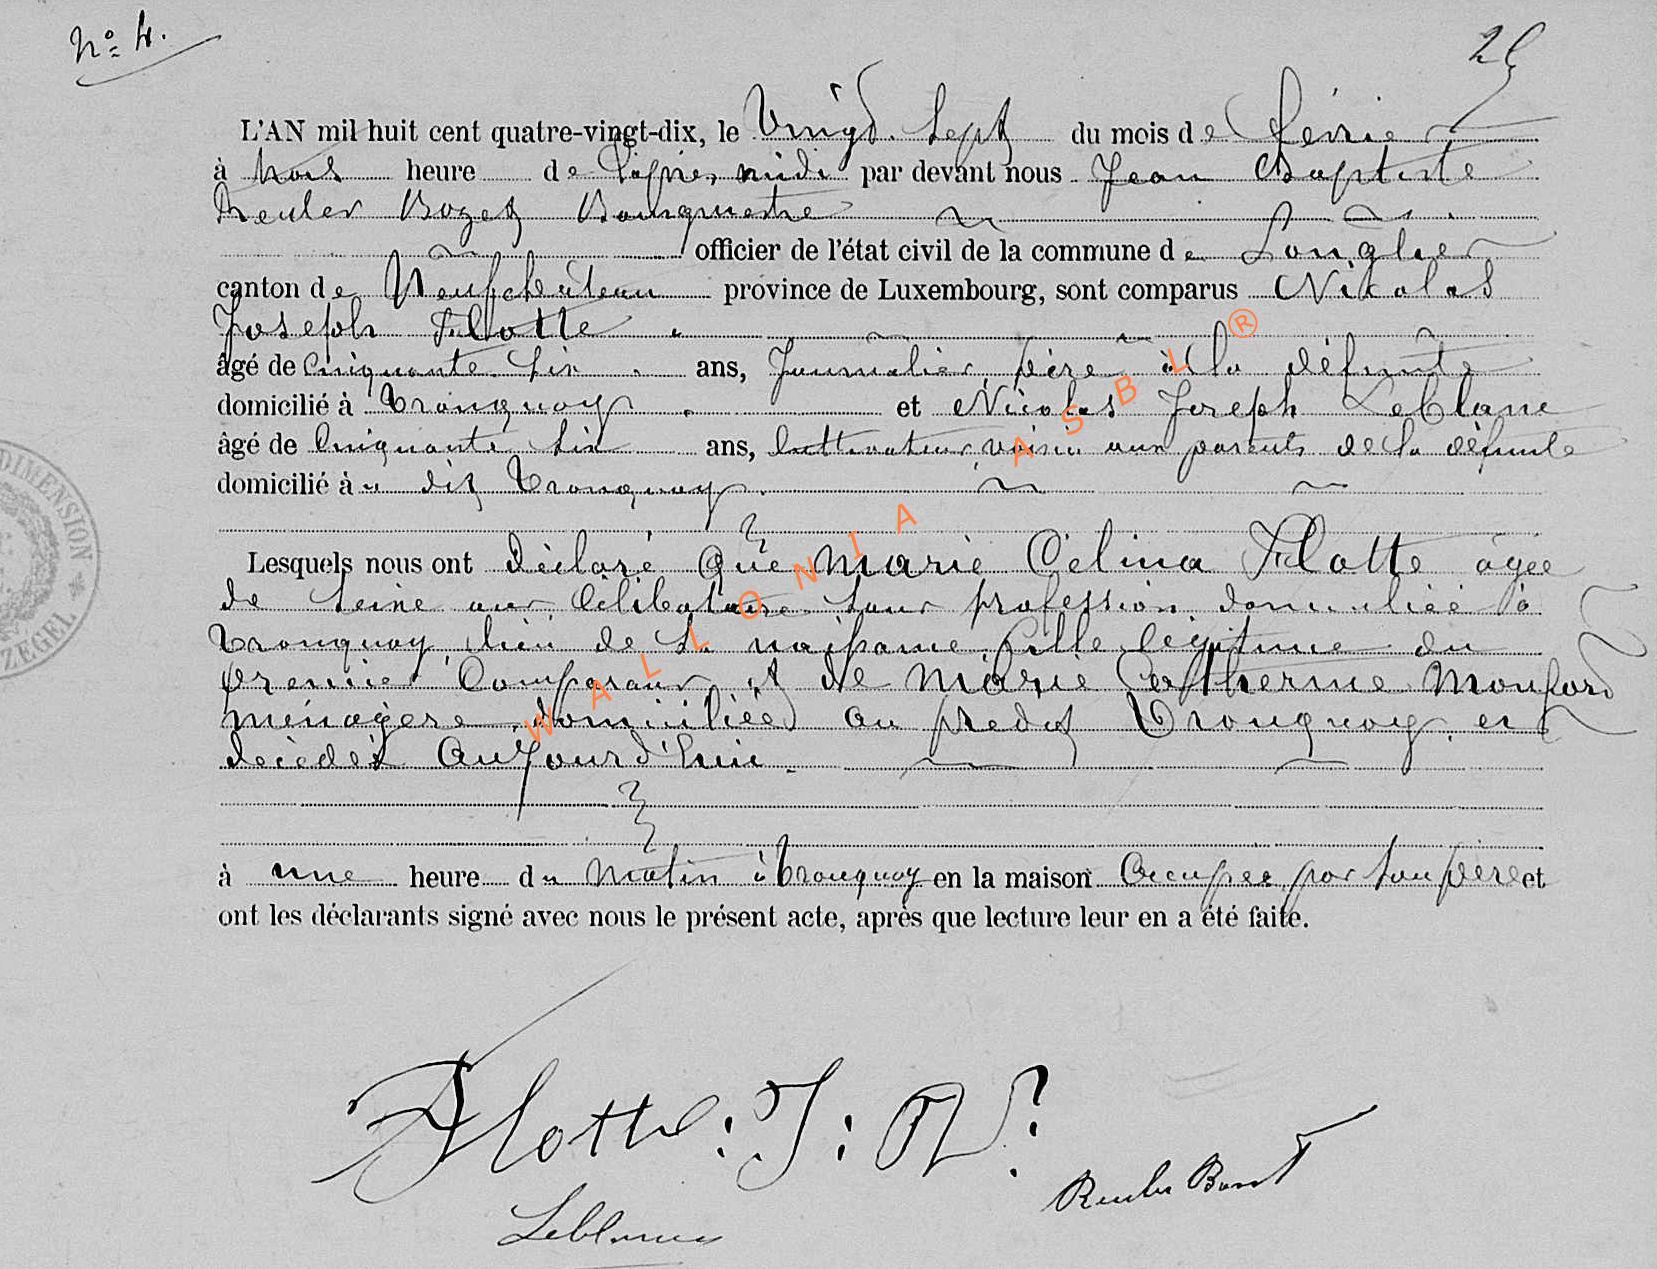 N° 4.
25
L'AN mil huit cent quatre-vingt-dix, le Vingt Sept du mois de fevrier
à trois heure de l'après midi par devant nous Jean Baptiste
Reuler Bozet Bourgmestre
officier de l'état civil de la commune de Longlier
canton de Neufchâteau province de Luxembourg, sont comparus Nicolas
Joseph Flotte
âgé de Cinquante Six ans, Journalier, père à la défunte
domicilié à Tronquoy et Nicolas Joseph LeBlanc
âgé de Cinquante Six ans, Cultivateur, voisin aux parents de la défunte
domicilié à u dit Tronquoy.
Lesquels nous ont déclaré que Marie Célina Flotte âgée
de Seize ans Célibataire Sans profession domiciliée à
Tronquoy, lieu de Sa naissance, fille légitime du
premier Comparant et de Marie Catherine Monfort
ménagère domiciliée au predit Tronquoy, est
décédée Aujourd'hui.
à une heure du Matin à Tronquoy en la maison Occupée par Son père et
ont les déclarants signé avec nous le présent acte, après que lecture leur en a été faite.
Flotte: J: N
Leblanc
Reuler Bozet
DIMENSION
ZEGEL
WALLONIA ASBL ®